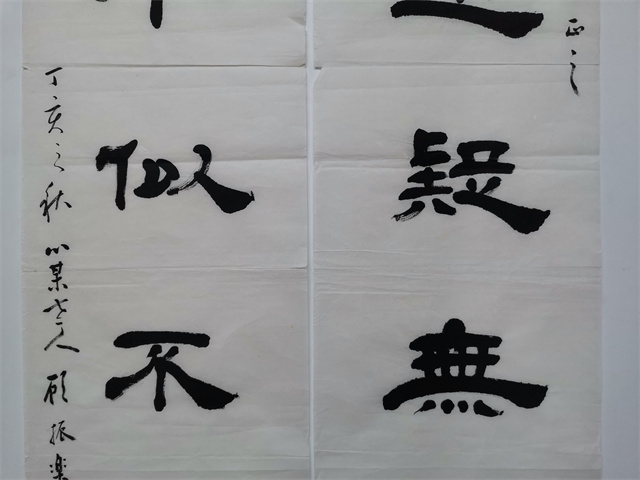 正之
疑無
似不
丁亥之秋心某老人顾振樂